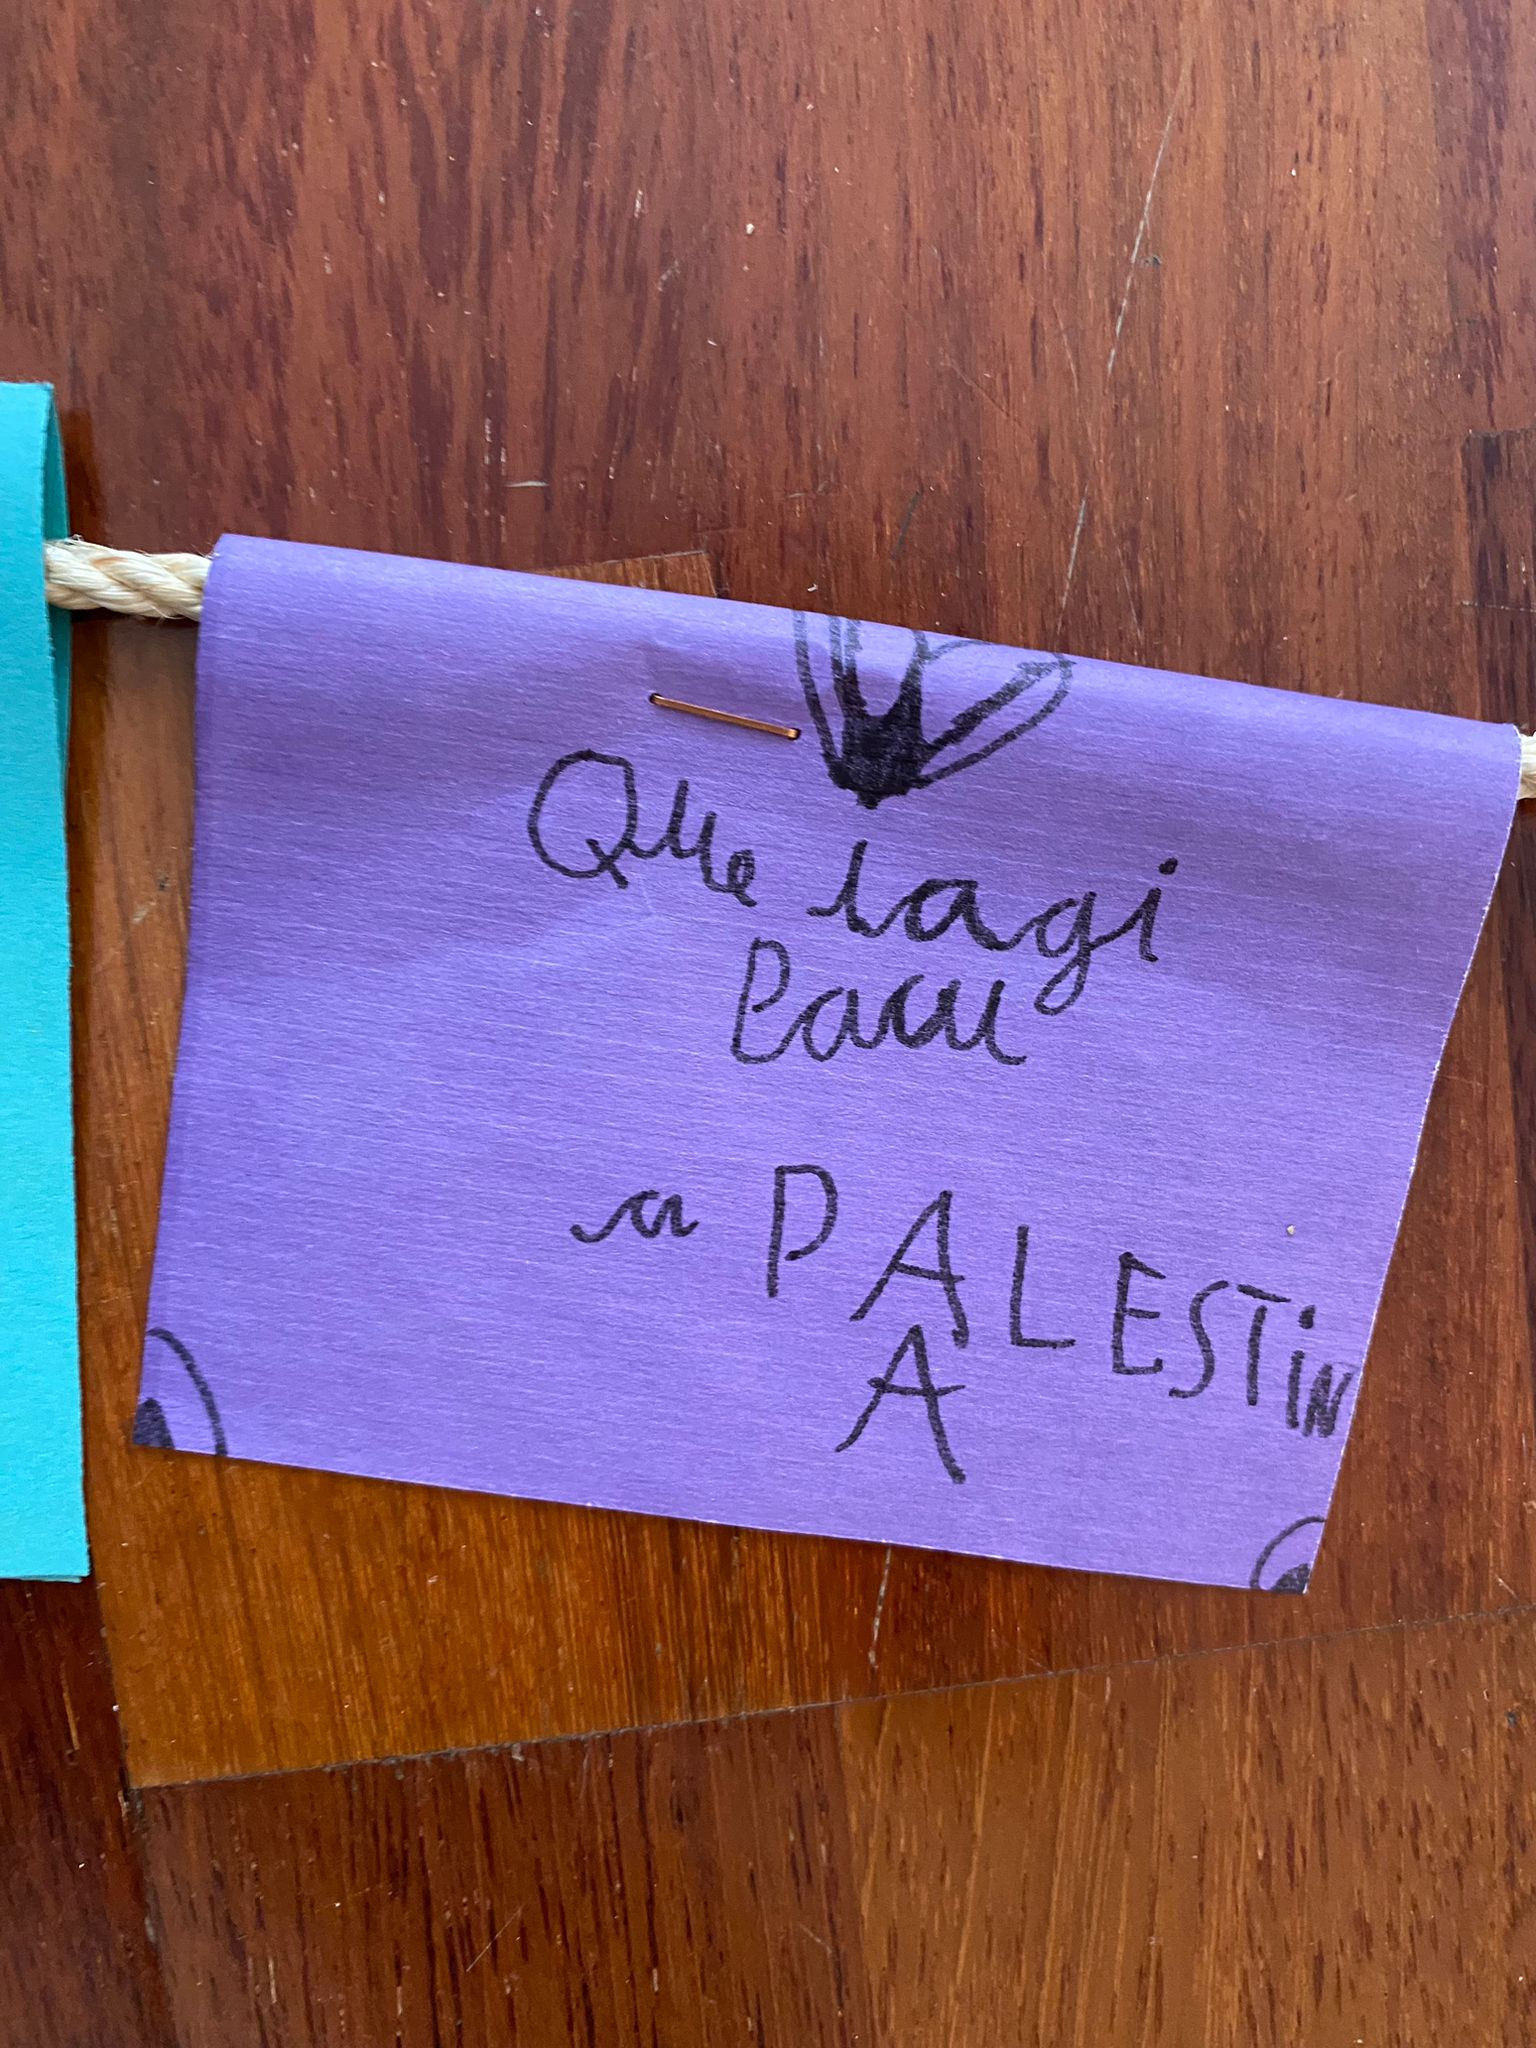 Que iagi
Pau
a PALESTIN
A